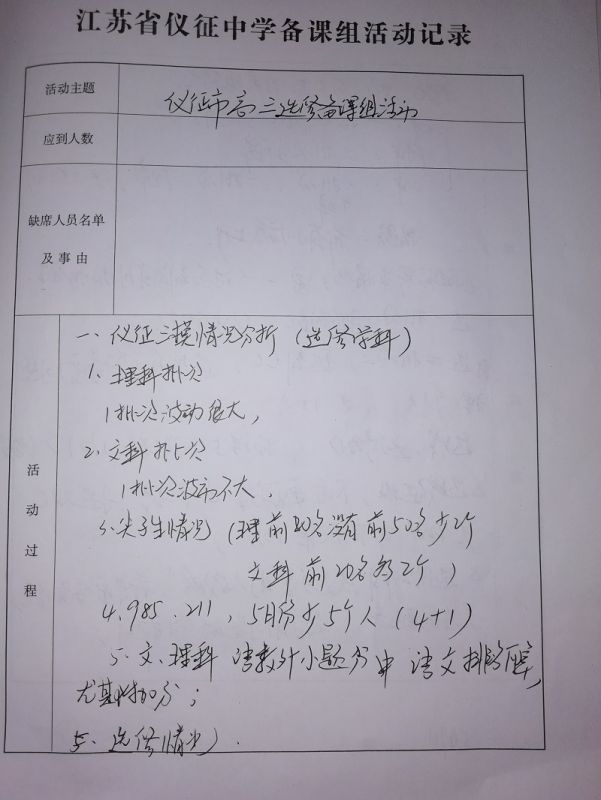 江苏省仪征中学备课组活动记录
活动主题
仪征市高三选修备课组活动
应到人数
缺席人员名单
及事由
活动过程
一、仪征三模情况分析（选修学科）
1、理科批次
1批次波动很大，
2、文科批次
1批次波动不大．
3、尖子生情况（理前20名没有 前50名少2个
文科前20名 2个）
4、985．211，5月份少5个人（4+1）
5、文、理科 语数外小题分中 语文
尤其附加分；
选修情